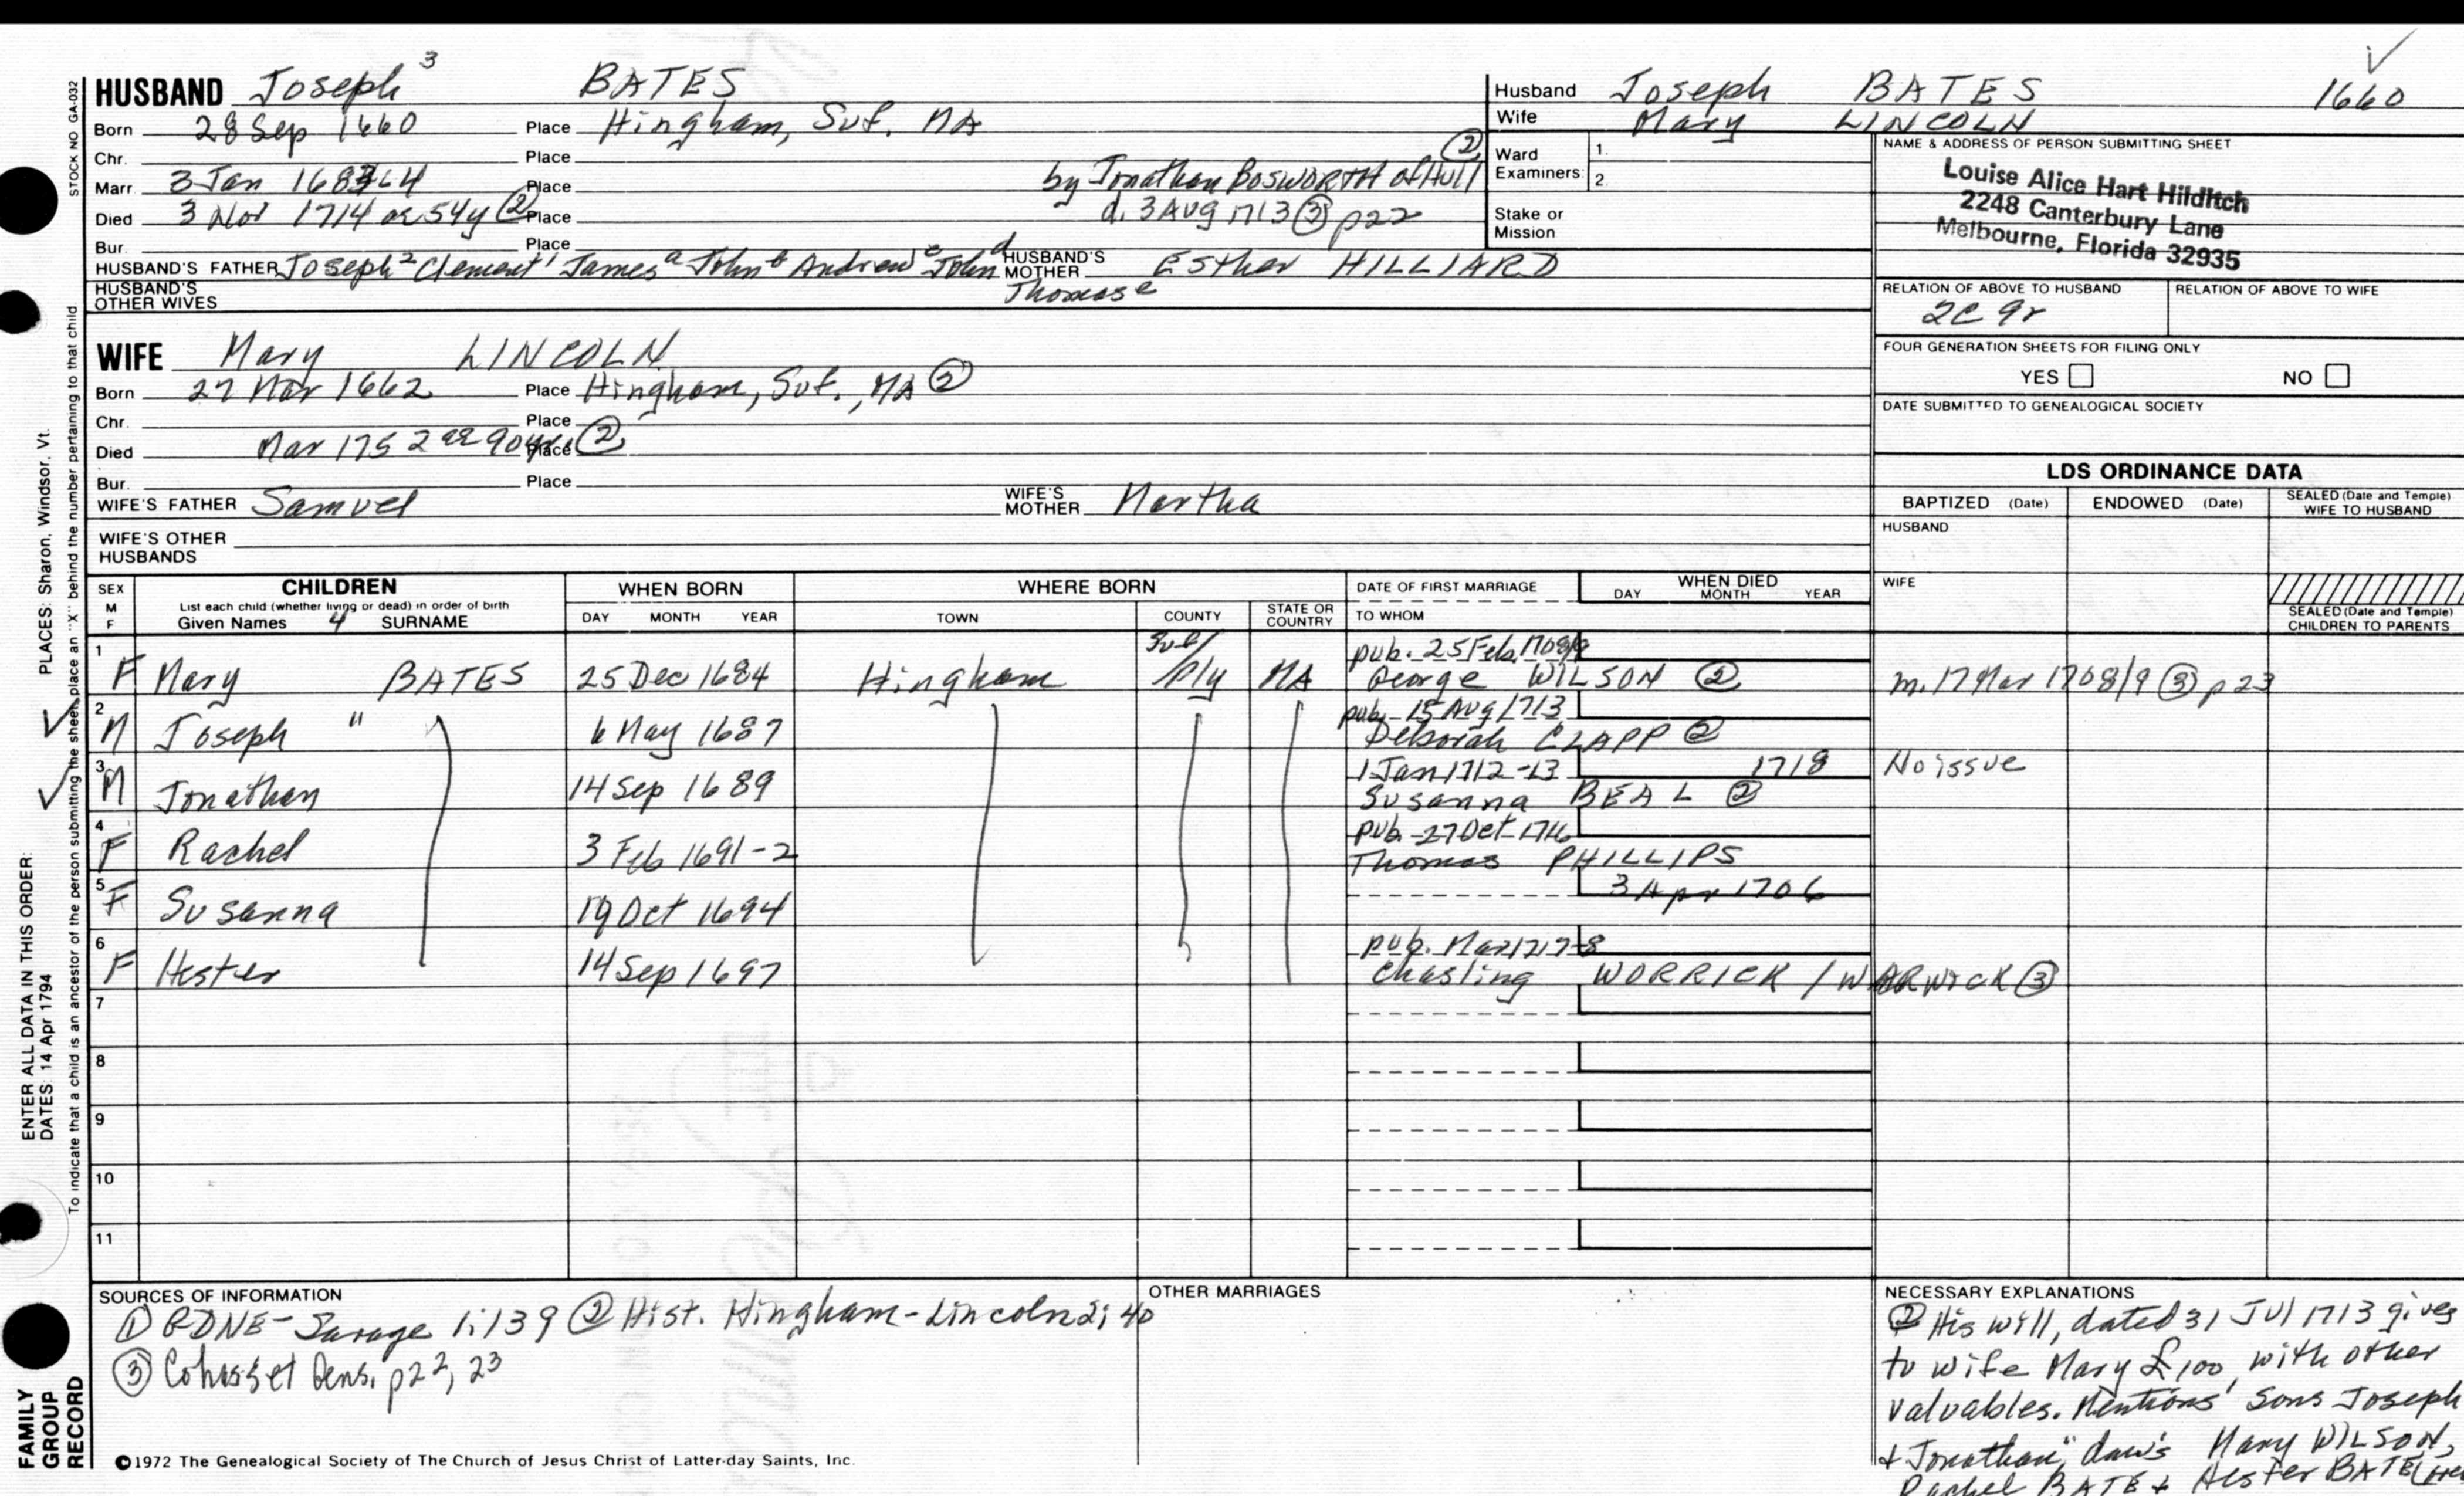 HUSBAND Joseph 3 BATES
Born 28 Sep 1660 Place Hingham, Suf. MA
Chr. Place
Marr 3 Jan 1683/4 Place by Jonathan BOSWORTH of Hull ②
Died 3 Nov 1714 ae 54y ② Place d. 3 AUG 1713 ③ p22
Bur. Place
HUSBAND'S FATHER Joseph 2 Clement 1 James a John b Andrew c John d Thomas e
HUSBAND'S MOTHER Esther HILLIARD
HUSBAND'S OTHER WIVES
WIFE Mary LINCOLN
Born 27 Mar 1662 Place Hingham, Suf., MA ②
Chr. Place
Died Mar 1752 ae 90 yrs ② Place
Bur. Place
WIFE'S FATHER Samuel WIFE'S MOTHER Martha
WIFE'S OTHER HUSBANDS
Husband Joseph BATES 1660
Wife Mary LINCOLN
Ward Examiners: 1.
2.
Stake or Mission
NAME & ADDRESS OF PERSON SUBMITTING SHEET
Louise Alice Hart Hilditch
2248 Canterbury Lane
Melbourne, Florida 32935
RELATION OF ABOVE TO HUSBAND RELATION OF ABOVE TO WIFE
2C 9r
FOUR GENERATION SHEETS FOR FILING ONLY
YES NO
DATE SUBMITTED TO GENEALOGICAL SOCIETY
LDS ORDINANCE DATA
BAPTIZED (Date) ENDOWED (Date) SEALED (Date and Temple) WIFE TO HUSBAND
HUSBAND
WIFE
SEALED (Date and Temple) CHILDREN TO PARENTS
SEX M F CHILDREN WHEN BORN WHERE BORN DATE OF FIRST MARRIAGE WHEN DIED
List each child (whether living or dead) in order of birth
Given Names 4 SURNAME DAY MONTH YEAR TOWN COUNTY STATE OR COUNTRY TO WHOM DAY MONTH YEAR
1 Suf/ pub. 25 Feb. 1708/9
F Mary BATES 25 Dec 1684 Hingham Ply MA George WILSON ② m. 17 Mar 1708/9 ③ p 23
2 pub. 15 AUG 1713
M Joseph " 6 May 1687 Deborah CLAPP ②
3 1 Jan 1712-13 1718 No issue
M Jonathan 14 Sep 1689 Susanna BEAL ②
4 pub. 27 Oct 1716
F Rachel 3 Feb 1691-2 Thomas PHILLIPS
5 3 Apr 1706
F Susanna 19 Oct 1694
6 pub. Mar 1717-8
F Hester 14 Sep 1697 Chasling WORRICK / WARWICK ③
7
8
9
10
11
SOURCES OF INFORMATION
① GDNE - Savage 1:139 ② Hist. Hingham - Lincoln 2; 40
③ Cohasset Gens. p22, 23
OTHER MARRIAGES
NECESSARY EXPLANATIONS
② His will, dated 31 JUl 1713 gives
to wife Mary £100, with other
valuables. Mentions "sons Joseph
& Jonathan" dau's Mary WILSON,
Rachel BATE & Hester BATE
©1972 The Genealogical Society of The Church of Jesus Christ of Latter-day Saints, Inc.
FAMILY GROUP RECORD
ENTER ALL DATA IN THIS ORDER:
DATES: 14 Apr 1794 PLACES: Sharon, Windsor, Vt.
To indicate that a child is an ancestor of the person submitting the sheet, place an "X" behind the number pertaining to that child
STOCK NO GA-032